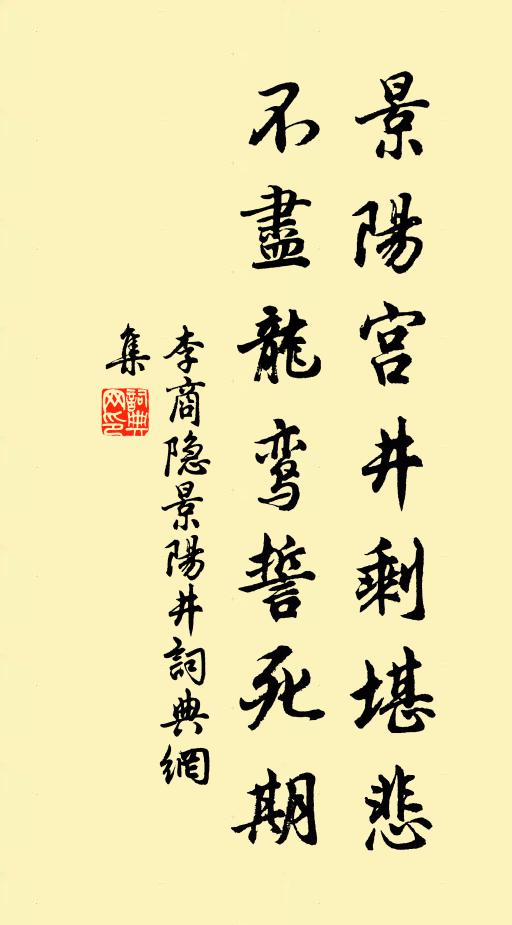 景陽宫井剩堪悲
不盡龍鸾誓死期
李商隐景陽井詞典網
集
詞典
网印